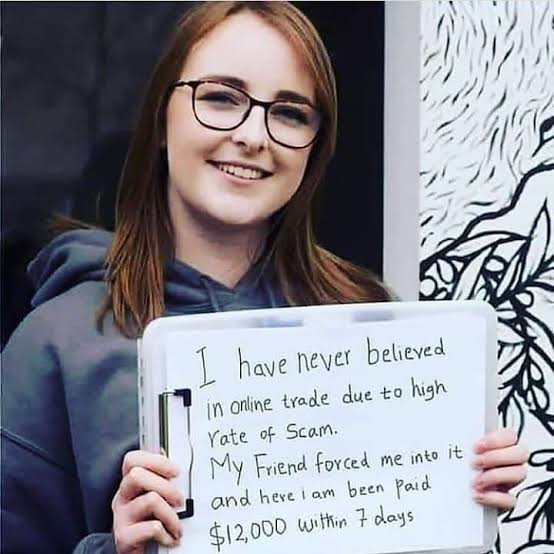 I have never believed
in online trade due to high
rate of Scam.
My Friend forced me into it
and here i am been paid
$12,000 within 7 days